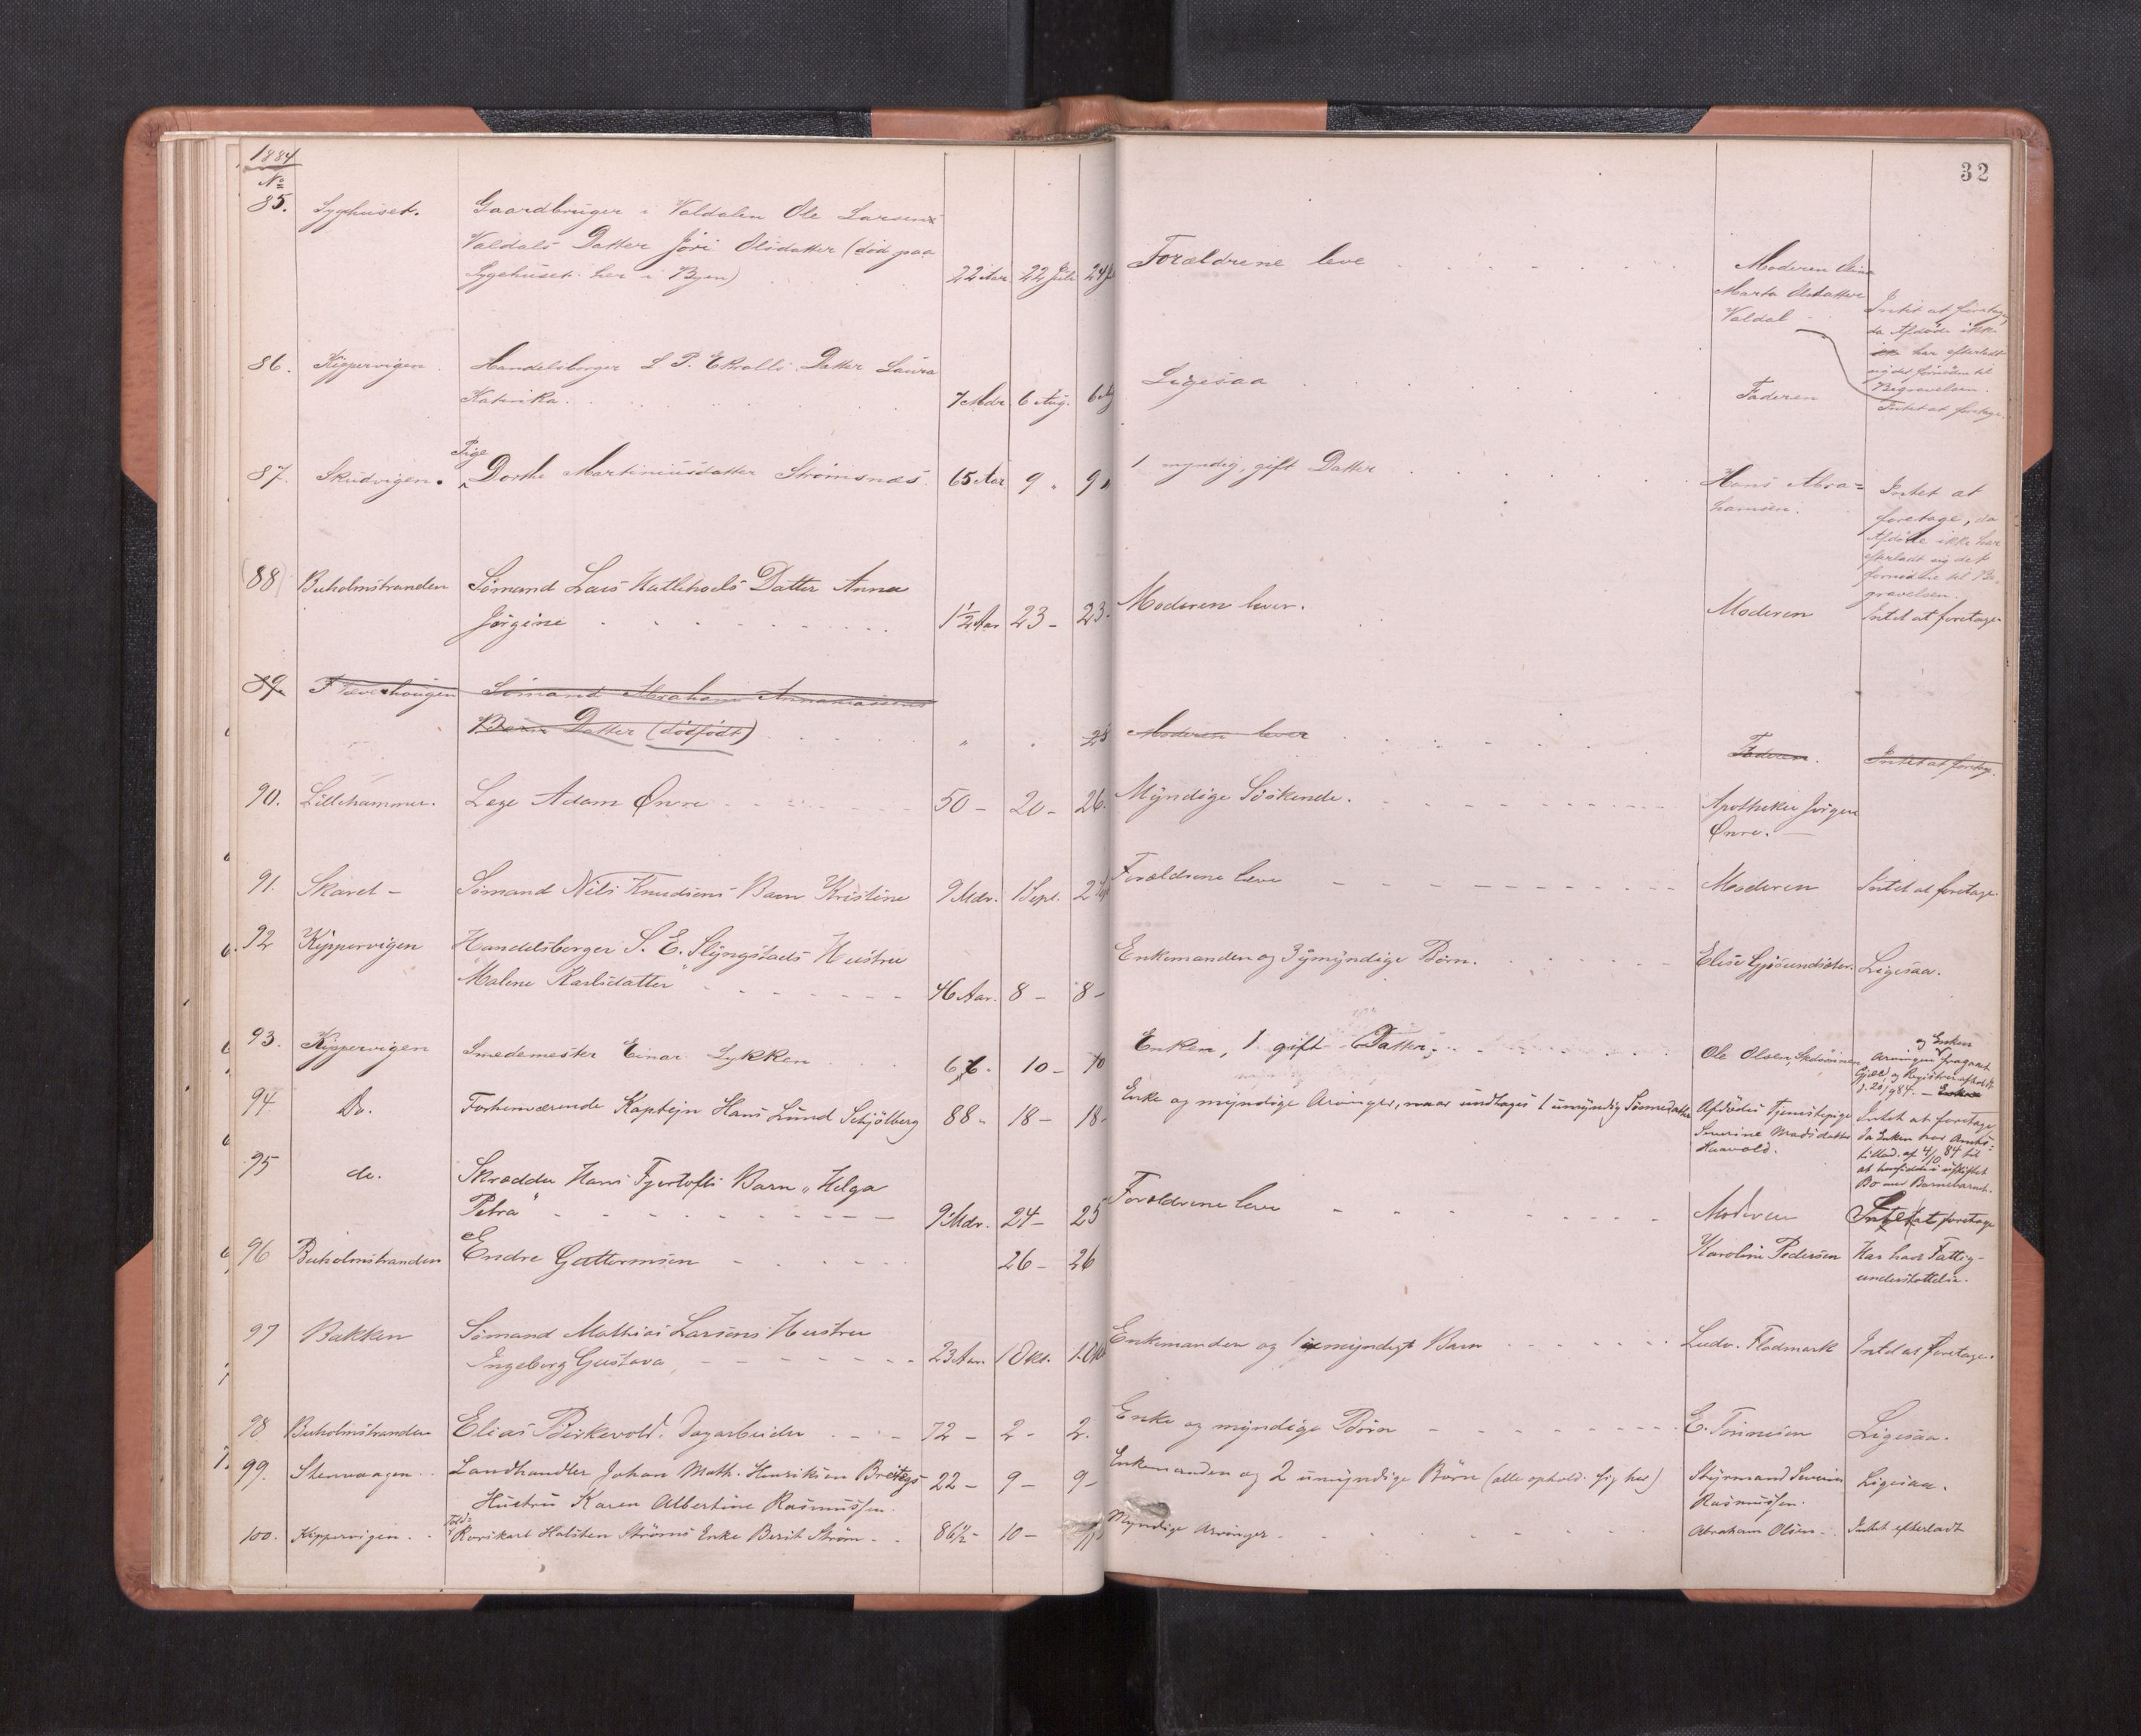 1884
32
No
85. Sygehuset. Gaardbruger i Valdalen Ole Larsens
Valdals Datter Jöri Olsdatter (död paa
Sygehuset her i Byen) 22 Aar 22 Juli 24 Forældrene leve Moderen
Marta Olsdatter
Valdal
Intet at foretage,
da Afdöde ikke
har efterladt
sig det fornödne til
Begravelsen.
86. Kippervigen Handelsborger L P. Ekrolls Datter Laura
Katrika. 7 Mdr. 6 Aug. 6 Aug Ligesaa Faderen Intet at foretage.
87. Skudvigen. Pige Dorthe Martinusdatter Strömsnæs. 65 Aar 9 " 9 " 1 myndig, gift Datter Hans Abra=
hamsen.
Intet at
foretage, da
Afdöde ikke har
efterladt sig det
fornödne til Be-
gravelsen.
(88) Buholmstranden Sömand Lars Hatlehoels Datter Anna
Jörgine 1½ Aar 23 - 23. Moderen lever. Moderen Intet at foretage
89. Sömand Abraham Annaniassens
Barn Datter (dödfödt) " " 23 Moderen lever Faderen. Intet at foretage.
90. Lillehammer. Læge Adam Önre 50 - 20 - 26. Myndige Söskende. Apotheker Jörgen
Önre.
91. Skaret - Sömand Nils Knudsens Barn Kristine 9 Mdr. 1 Sept. 2 Sept Forældrene leve Moderen Intet at foretage.
92 Kippervigen Handelsborger S. E. Slyngstads Hustru
"Malene Karlsdatter" 46 Aar. 8 - 8 - Enkemanden og 3 umyndige Börn. Elise Gjösundsæter. Ligesaa.
93. Kippervigen Smedemester Einar Lykken 66. 10 - 10 Enken, 1 gift Datter, Ole Olsen, og Enken
Arvingen fragaaet
Gjæld og Registrering afholdt
d. 20/9 84.
94 Do. Forhenværende Kaptejn Hans Lund Schjölberg 88 " 18 - 18 - Enke og myndige Arvinger, naar undtages 1 umyndig Sönnedatter Afdödes Tjenestepige
Severine Madsdatter
Haavold.
Intet at foretage
da Enken har Amts=
tillad. af 4/10 84 til
at hensidde i uskiftet
Bo med Barnebarnet.
95 do. Skrædder Hans Fjertofts Barn "Helga
Petra" 9 Mdr. 24 - 25 Forældrene leve Moderen Intet at foretage
96 Buholmstranden Endre Guttormsen 26 - 26 Karoline Pedersen Har havt Fattig-
understöttelse.
97 Bakken Sömand Mathias Larsens Hustru
Ingeborg Gustava 23 Aar. 1 Okt. 1. Okt Enkemanden og 1 umyndigt Barn Ludv. Flodmark Intet at foretage.
98 Buholmstranden Elias Birkevold. Dagarbeider 72 - 2 - 2. Enke og myndige Börn E. Tönnesen Ligesaa.
99. Stenvaagen Landhandler Johan Math. Henriksen Breitegs
Hustru Karen Albertine Rasmussen. 22 - 9 - 9 - Enkemanden og 2 umyndige Börn (alle ophold. sig her) Styrmand Severin
Rasmussen.
Ligesaa.
100. Kippervigen. Told=
Rorskarl Halsten Ströms Enke Berit Ström 86½ - 10 - Myndige Arvinger. Abraham Olsen Intet efterladt